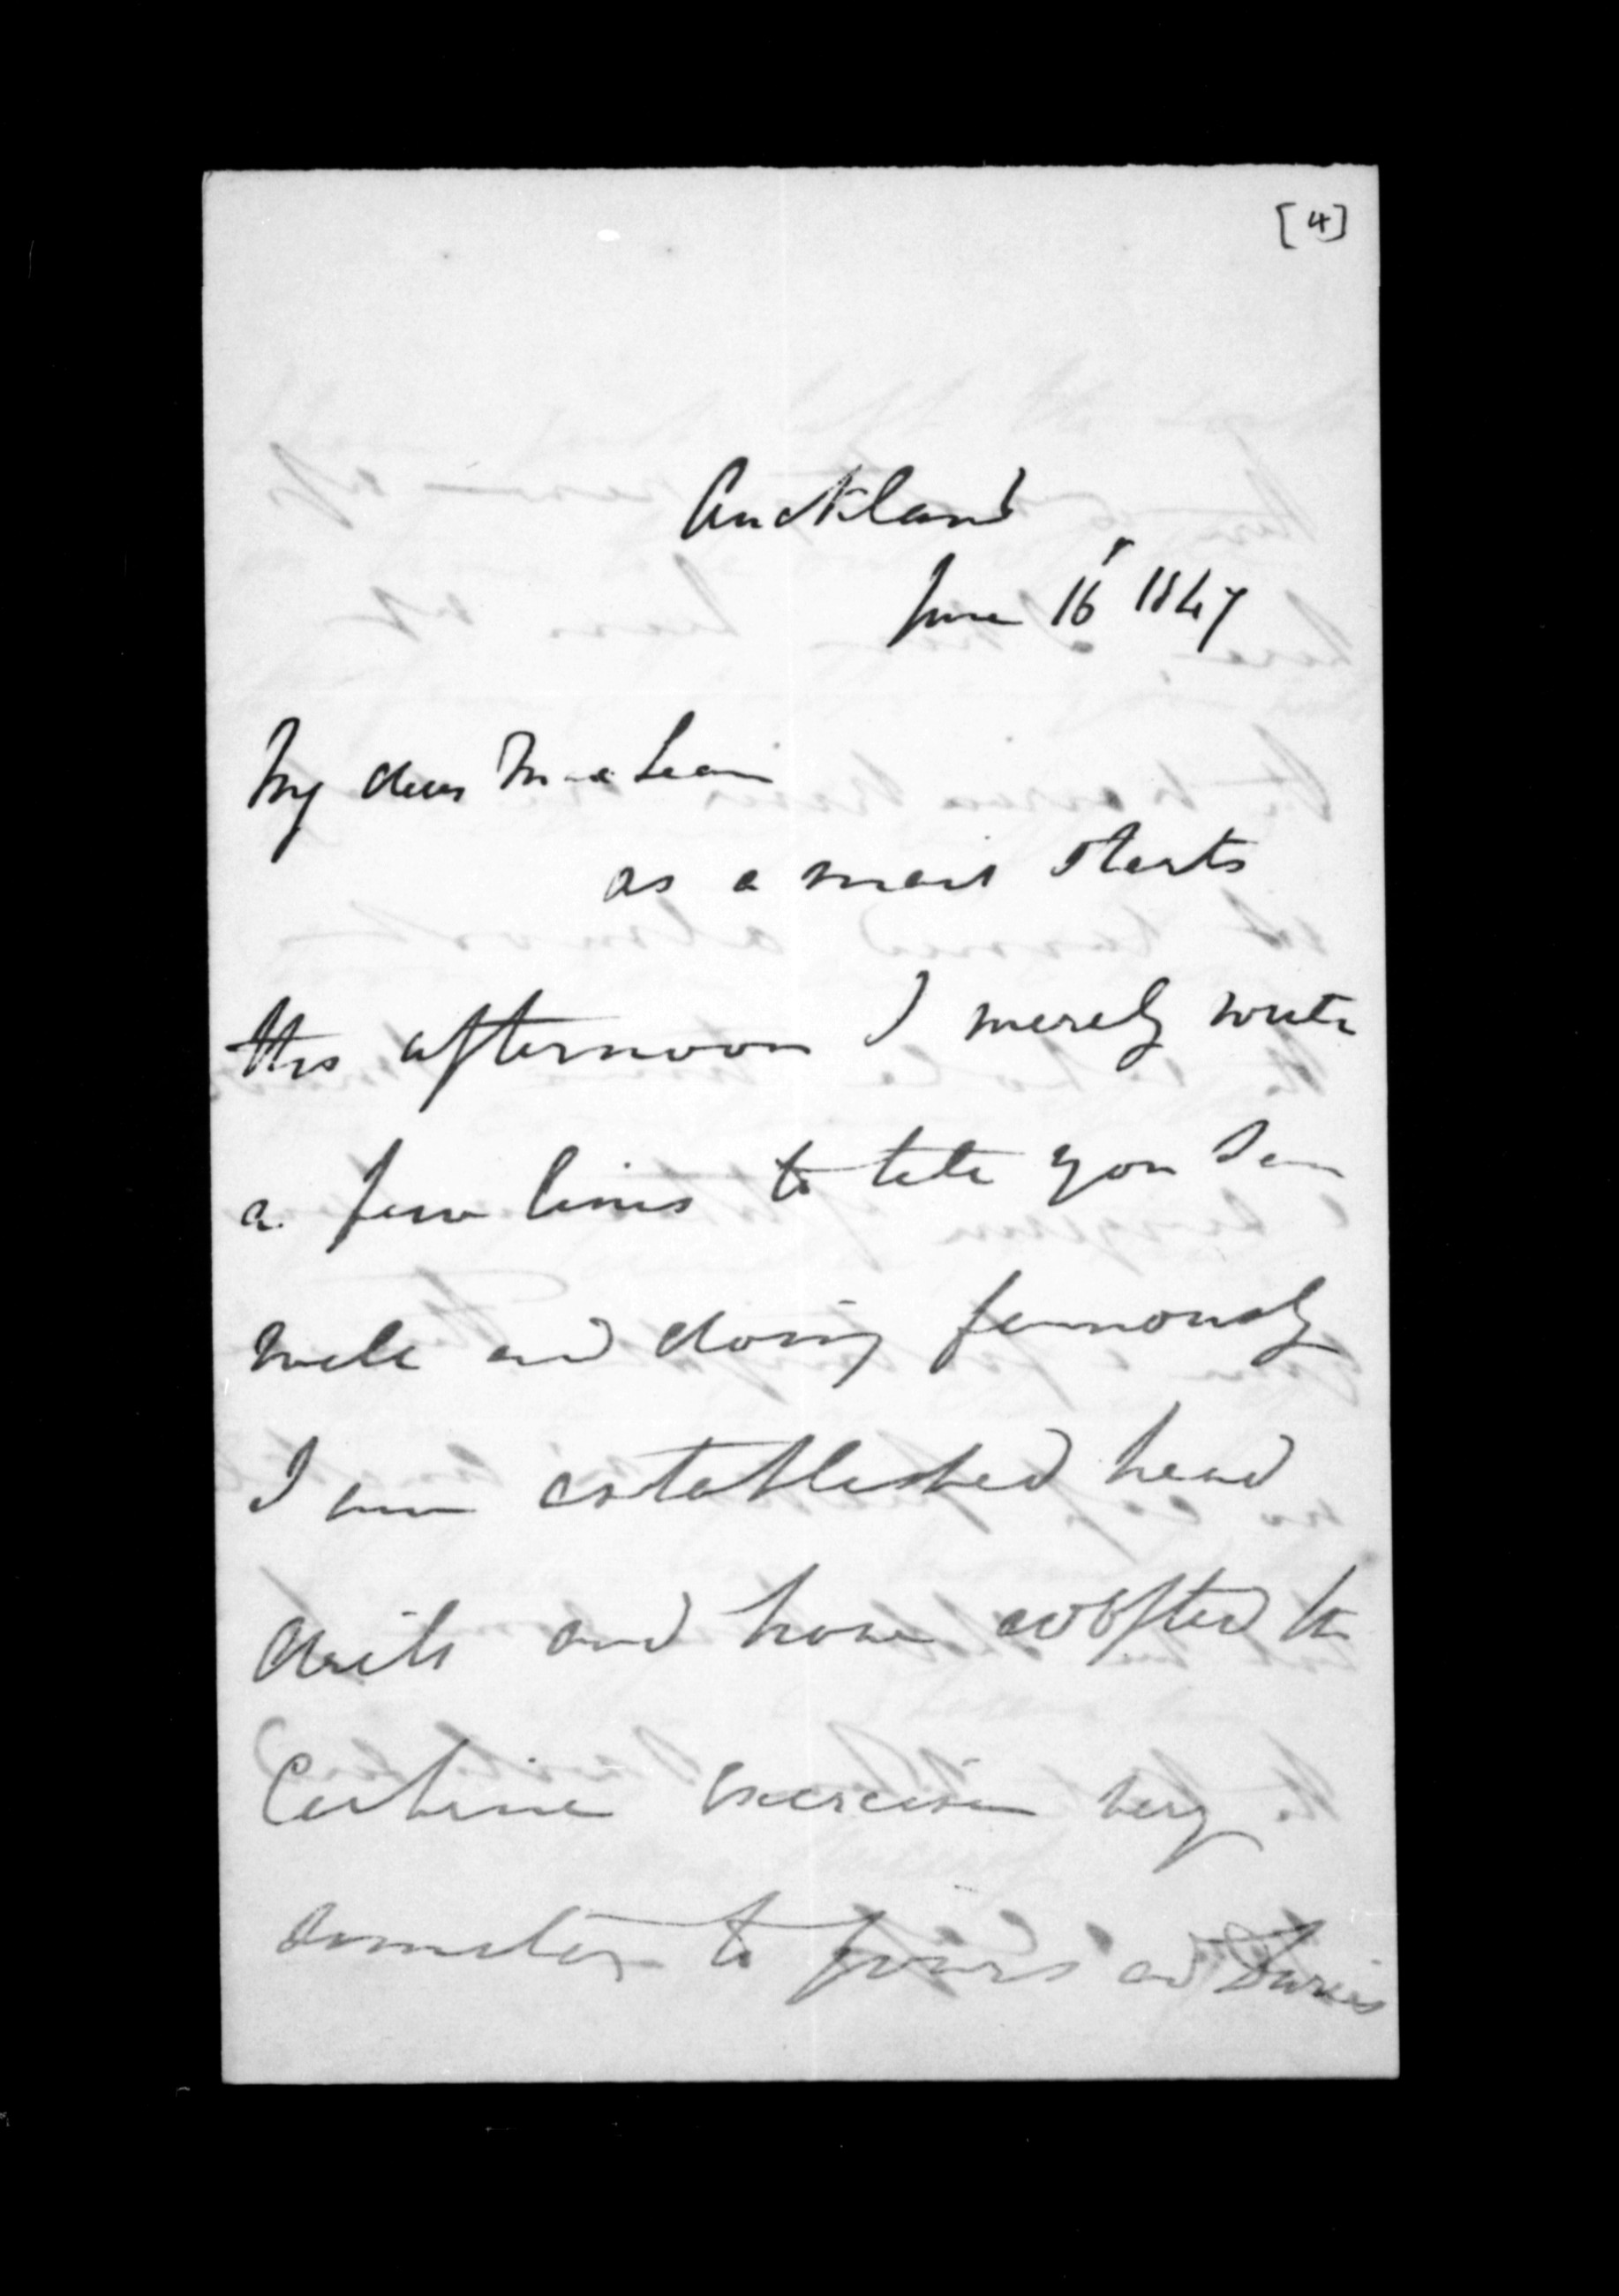 [4]
Auckland
June 16 1847
My dear MacLean
as a mail starts
this afternoon I merely write
a few lines to tell you I am
well and doing famously
I am established head
drill and have adopted the
Carbine exercise very
similar to yours and Davies